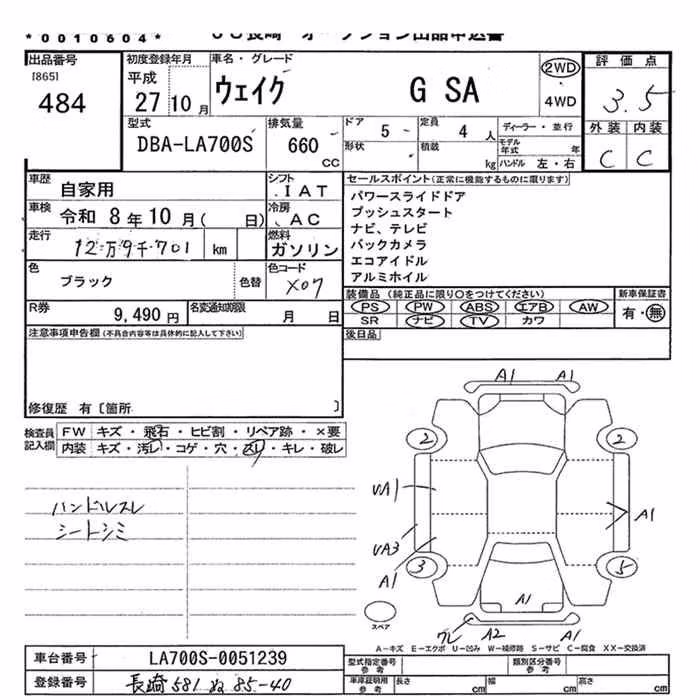 *0010604* JU長崎 オークション出品申込書
出品番号
[865]
484
初度登録年月
平成
27 10 月
車名・グレード
ウェイク G SA
2WD
4WD
評価点
3.5
外装 内装
C C
型式
DBA-LA700S
排気量
660
CC
ドア 5
定員 4 人
ディーラー・並行
形状
積載 kg
モデル年式 年
ハンドル 左・右
車歴 自家用
シフト IAT
車検 令和 8年 10月( 日)
冷房 AC
走行 12万9千701 km
燃料 ガソリン
色 ブラック
色替
色コード X07
R券 9,490 円
名変通知期限 月 日
セールスポイント(正常に機能するものに限ります)
パワースライドドア
プッシュスタート
ナビ、テレビ
バックカメラ
エコアイドル
アルミホイル
装備品(純正品に限り○をつけてください)
新車保証書
PS PW ABS エアB AW
SR ナビ TV カワ
有・無
後日品
注意事項申告欄(不具合内容等は具体的に記入して下さい)
修復歴 有〔箇所 〕
検査員記入欄
FW キズ・飛石・ヒビ割・リペア跡・×要
内装 キズ・汚レ・コゲ・穴・スレ・キレ・破レ
ハンドルスレ
シートシミ
A1 A1
2 2
UA1
A1
UA3
A1
3 5
A1
ワレ A2 A1
スペア
A-キズ E-エクボ U-凹ミ W-補修跡 S-サビ C-腐食 XX-交換済
車台番号 LA700S-0051239
登録番号 長崎 581 ぬ 85-40
型式指定番号 参考
類別区分番号 参考
車庫証明用 参考
長さ cm
幅 cm
高さ cm